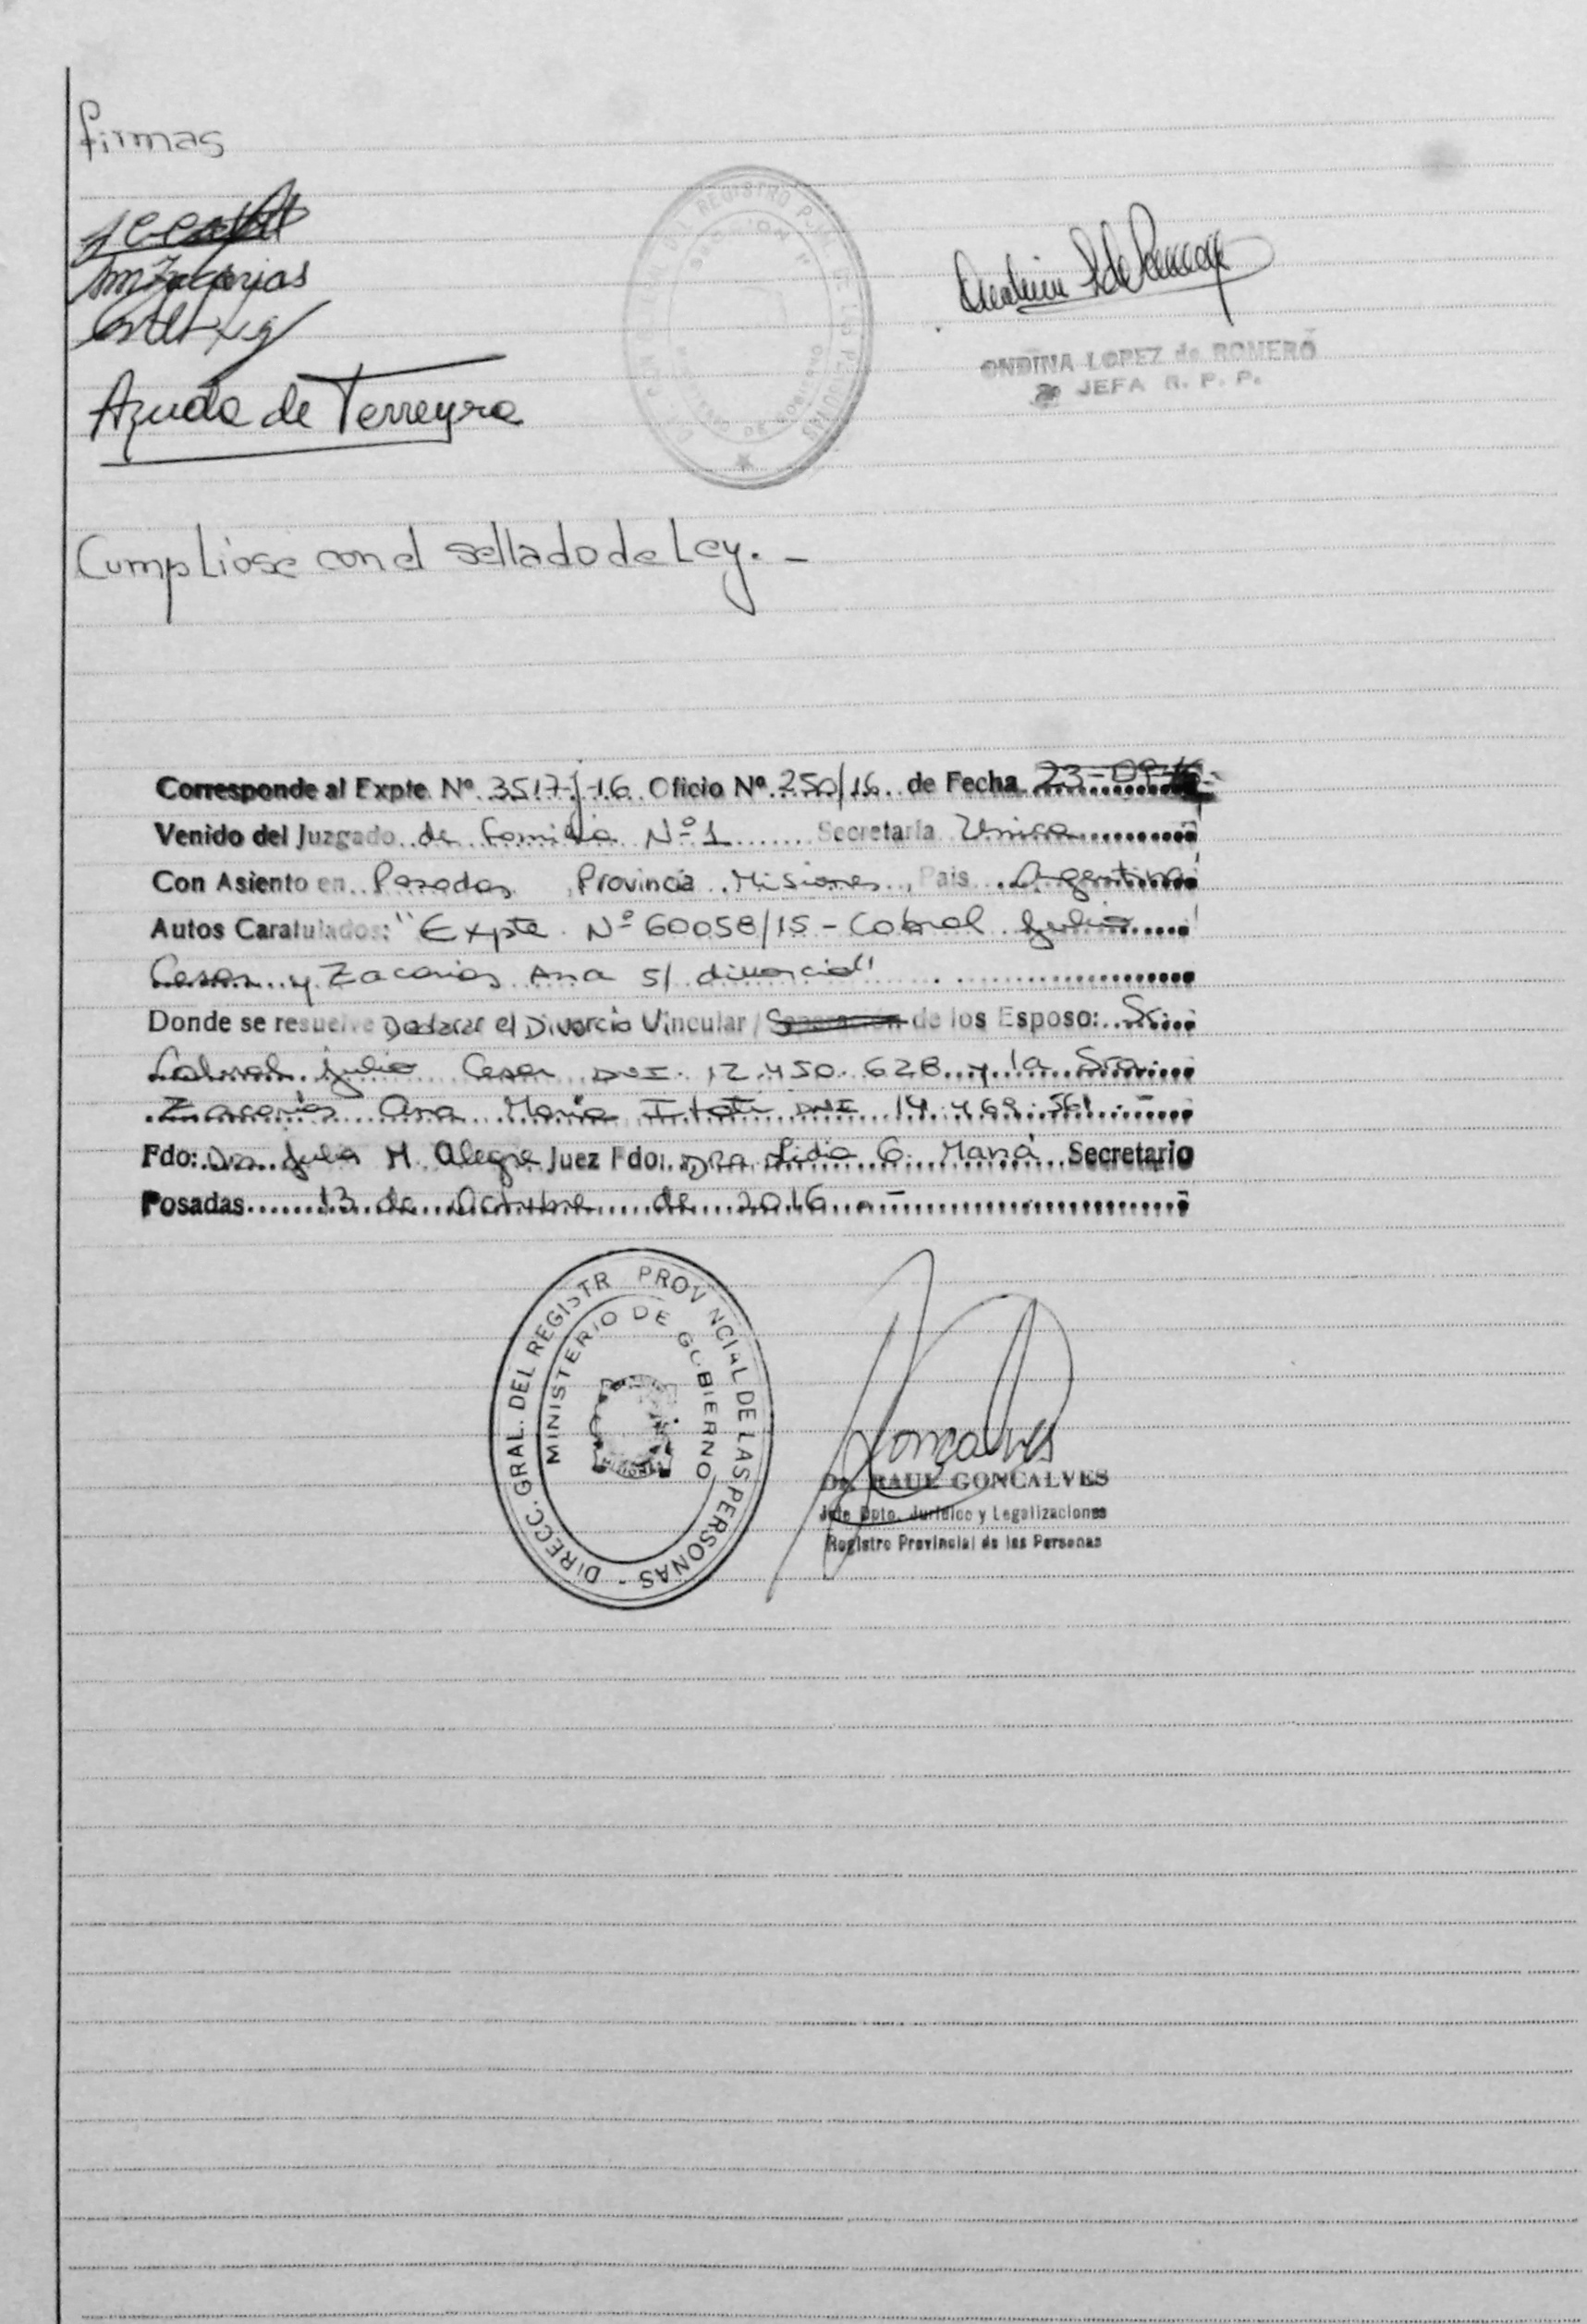 firmas
AmZacarias
Azuda de Terreyra
ONDINA LOPEZ de ROMERO
JEFA R. P. P.
Cumpliose con el sellado de Ley. -
Corresponde al Expte Nº 3517-j-16 Oficio Nº 250/16 de Fecha 23-09-16-
Venido del Juzgado de Familia Nº 1 Secretaría Unica
Con Asiento en Posadas, Provincia Misiones, País Argentina
Autos Caratulados: "Expte Nº 60058/15 - Cabral Julio
Cesar y Zacarias Ana s/ divorcio"
Donde se resuelve Declarar el Divorcio Vincular / Separación de los Esposo: Sr.
Cabral Julio Cesar DNI. 12.450.628 y la Sra
Zacarias Ana Maria Itati DNI 14.469.561.-
Fdo: Dra. Julia H. Alegre Juez Fdo: DRA Lidia G. Maná Secretario
Posadas 13 de Octubre de 2016.-
DIRECC. GRAL. DEL REGISTR PROVINCIAL DE LAS PERSONAS -
MINISTERIO DE GOBIERNO
Dr. RAUL GONCALVES
Jefe Dpto. Jurídico y Legalizaciones
Registro Provincial de las Personas